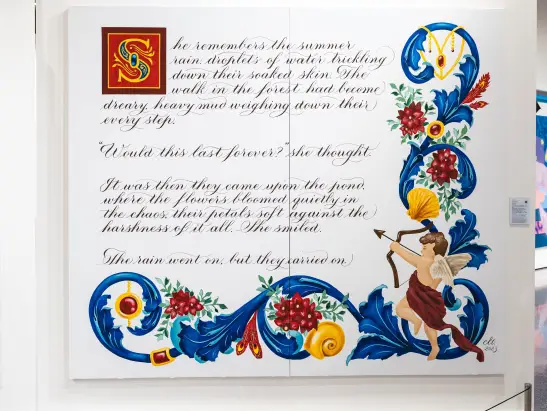 She remembers the summer
rain, droplets of water trickling
down their soaked skin. The
walk in the forest had become
dreary, heavy mud weighing down their
every step.
"Would this last forever?" she thought.
It was then they came upon the pond,
where the flowers bloomed quietly in
the chaos, their petals soft against the
harshness of it all. She smiled.
The rain went on, but they carried on